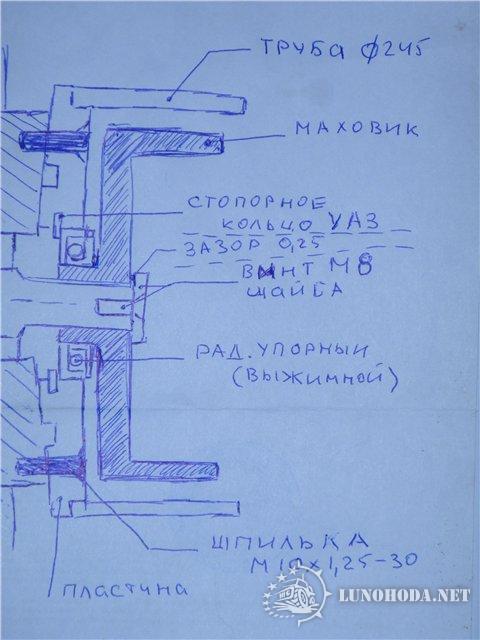 ТРУБА ϕ245
МАХОВИК
СТОПОРНОЕ
КОЛЬЦО УАЗ
ЗАЗОР 0,25
ВИНТ М8
ШАЙБА
РАД. УПОРНЫЙ
(ВЫЖИМНОЙ)
ШПИЛЬКА
М10х1,25-30
ПЛАСТИНА
LUNOHODA.NET